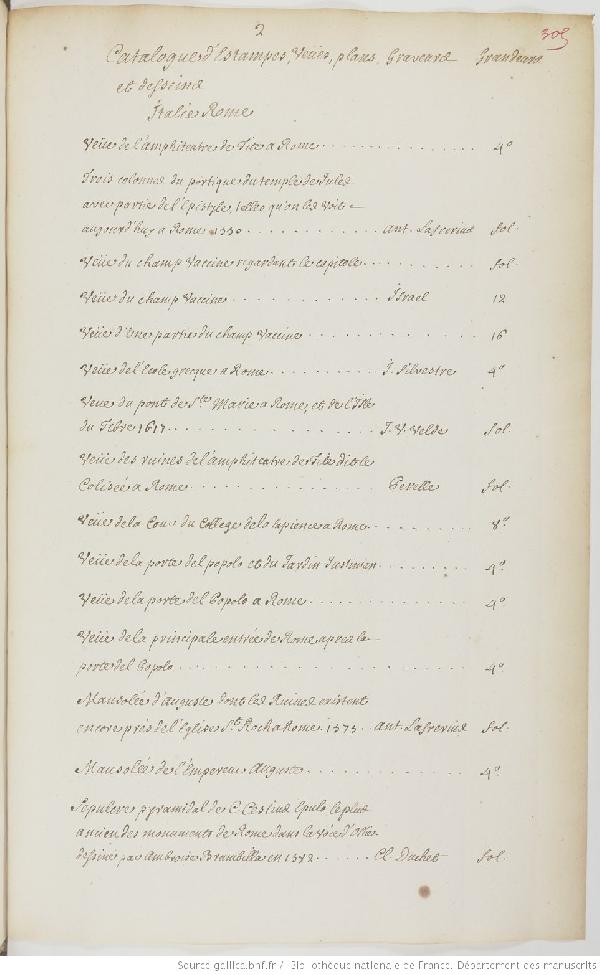 2
305
Catalogue d'Estampes, Veües, plans, Graveurs Grandeurs
et desseins
Italie Rome
Veüe de l'amphiteatre de Tite a Rome 4°
Trois colonnes du portique du temple de Jules
avec partie de l'Epistyle, telles qu'on les voit
aujourd'huy a Rome 1550 ant. Lafrerius fol.
Veüe du champ Vaccine regardant le capitole fol.
Veüe du champ Vaccine Israel 12
Veüe d'Une partie du champ Vaccine 16
Veüe de l'Ecole grecque a Rome J. Silvestre 4°
Veue du pont de Ste Marie a Rome, et de l'Isle
du Tibre 1617 J. V. Velde fol.
Veüe des ruines de l'amphiteatre de Tite dit le
Colisée a Rome Perelle fol.
Veüe de la Cour du College de la sapience a Rome 8°
Veüe de la porte del popolo et du Jardin Justinien 4°
Veüe de la porte del Popolo a Rome 4°
Veüe de la principale entrée de Rome apres la
porte del Popolo 4°
Mausolée d'Auguste dont les Ruines existent
encore près de l'Eglise St. Roch a Rome 1575 ant. Lafrerius fol.
Mausolée de l'Empereur Auguste 4°
Sepulcre pyramidal de C. Cestius Epulo le plus
ancien des monuments de Rome dans la Voie d'Ostie
dessiné par Ambroise Brambilla en 1582 Cl. Duchet fol.
Source gallica.bnf.fr / Bibliothèque nationale de France. Département des manuscrits